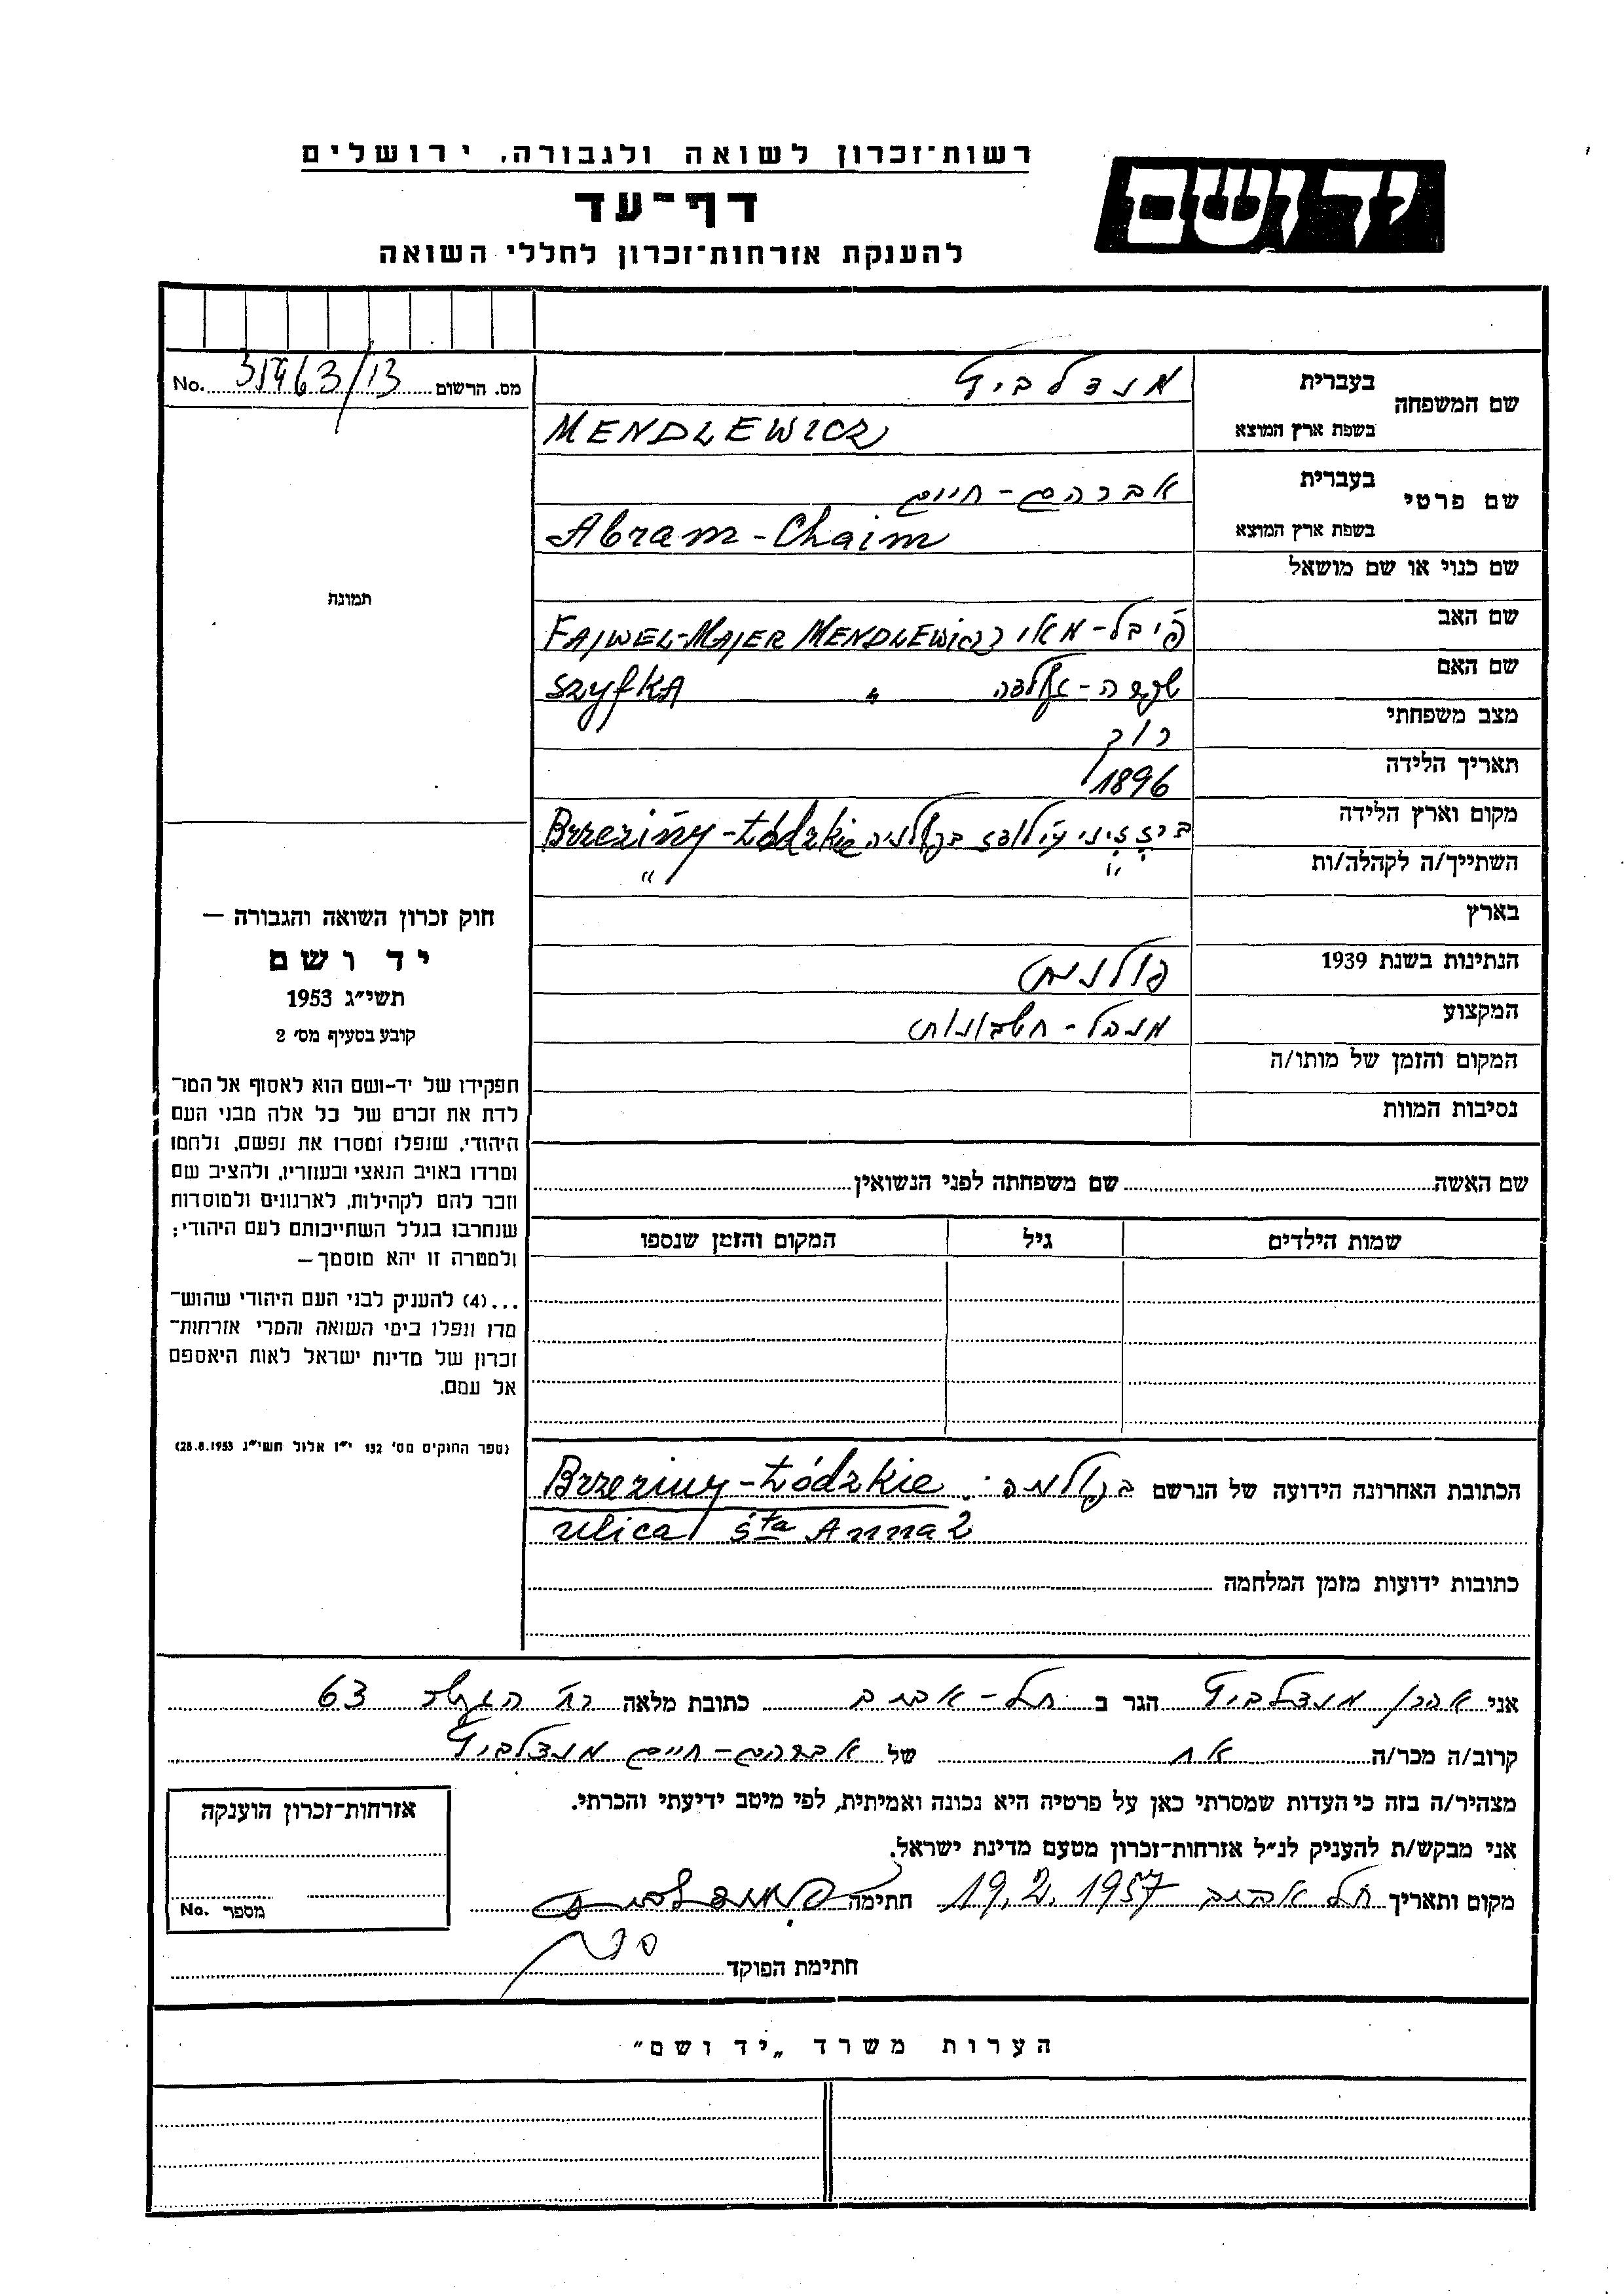 רשות־זכרון לשואה ולגבורה, ירושלים
יד ושם
דף־עד
להענקת אזרחות־זכרון לחללי השואה
מס. הרשום No.
שם המשפחה
בעברית מנדלביץ
בשפת ארץ המוצא MENDLEWICZ
שם פרטי
בעברית אברהם-חיים
בשפת ארץ המוצא Abram-Chaim
שם כנוי או שם מושאל
שם האב פייבל-מאיר FAJWEL-MAJER MENDLEWICZ
שם האם שפרה SZYFKA "
מצב משפחתי רווק
תאריך הלידה 1896
מקום וארץ הלידה Brzeziny-Łódzkie
השתייך/ה לקהלה/ות " "
בארץ
הנתינות בשנת 1939 פולנית
המקצוע מנהל-חשבונות
המקום והזמן של מותו/ה
נסיבות המוות
תמונה
חוק זכרון השואה והגבורה —
יד ושם
תשי״ג 1953
קובע בסעיף מס׳ 2
תפקידו של יד-ושם הוא לאסוף אל המו־
לדת את זכרם של כל אלה מבני העם
היהודי, שנפלו ומסרו את נפשם, נלחמו
ומרדו באויב הנאצי ובעוזריו, ולהציב שם
וזכר להם לקהילות, לארגונים ולמוסדות
שנחרבו בגלל השתייכותם לעם היהודי;
ולמטרה זו יהא מוסמך—
...(4) להעניק לבני העם היהודי שהוש־
מדו ונפלו בימי השואה והמרי אזרחות־
זכרון של מדינת ישראל לאות היאספם
אל עמם.
(ספר החוקים מס׳ 132 י״ז אלול תשי״ג 28.8.1953)
שם האשה שם משפחתה לפני הנשואין
שמות הילדים גיל המקום והזמן שנספו
הכתובת האחרונה הידועה של הנרשם Brzeziny-Łódzkie
ulica Śta Anna 2
כתובות ידועות מזמן המלחמה
אני אהרן מנדלביץ הגר ב תל-אביב כתובת מלאה 63
קרוב/ה מכר/ה אח של אברהם-חיים מנדלביץ
מצהיר/ה בזה כי העדות שמסרתי כאן על פרטיה היא נכונה ואמיתית, לפי מיטב ידיעתי והכרתי.
אני מבקש/ת להעניק לנ״ל אזרחות־זכרון מטעם מדינת ישראל.
מקום ותאריך תל אביב 19.2.1957 חתימה
חתימת הפוקד
אזרחות־זכרון הוענקה
מספר No.
הערות משרד „יד ושם״